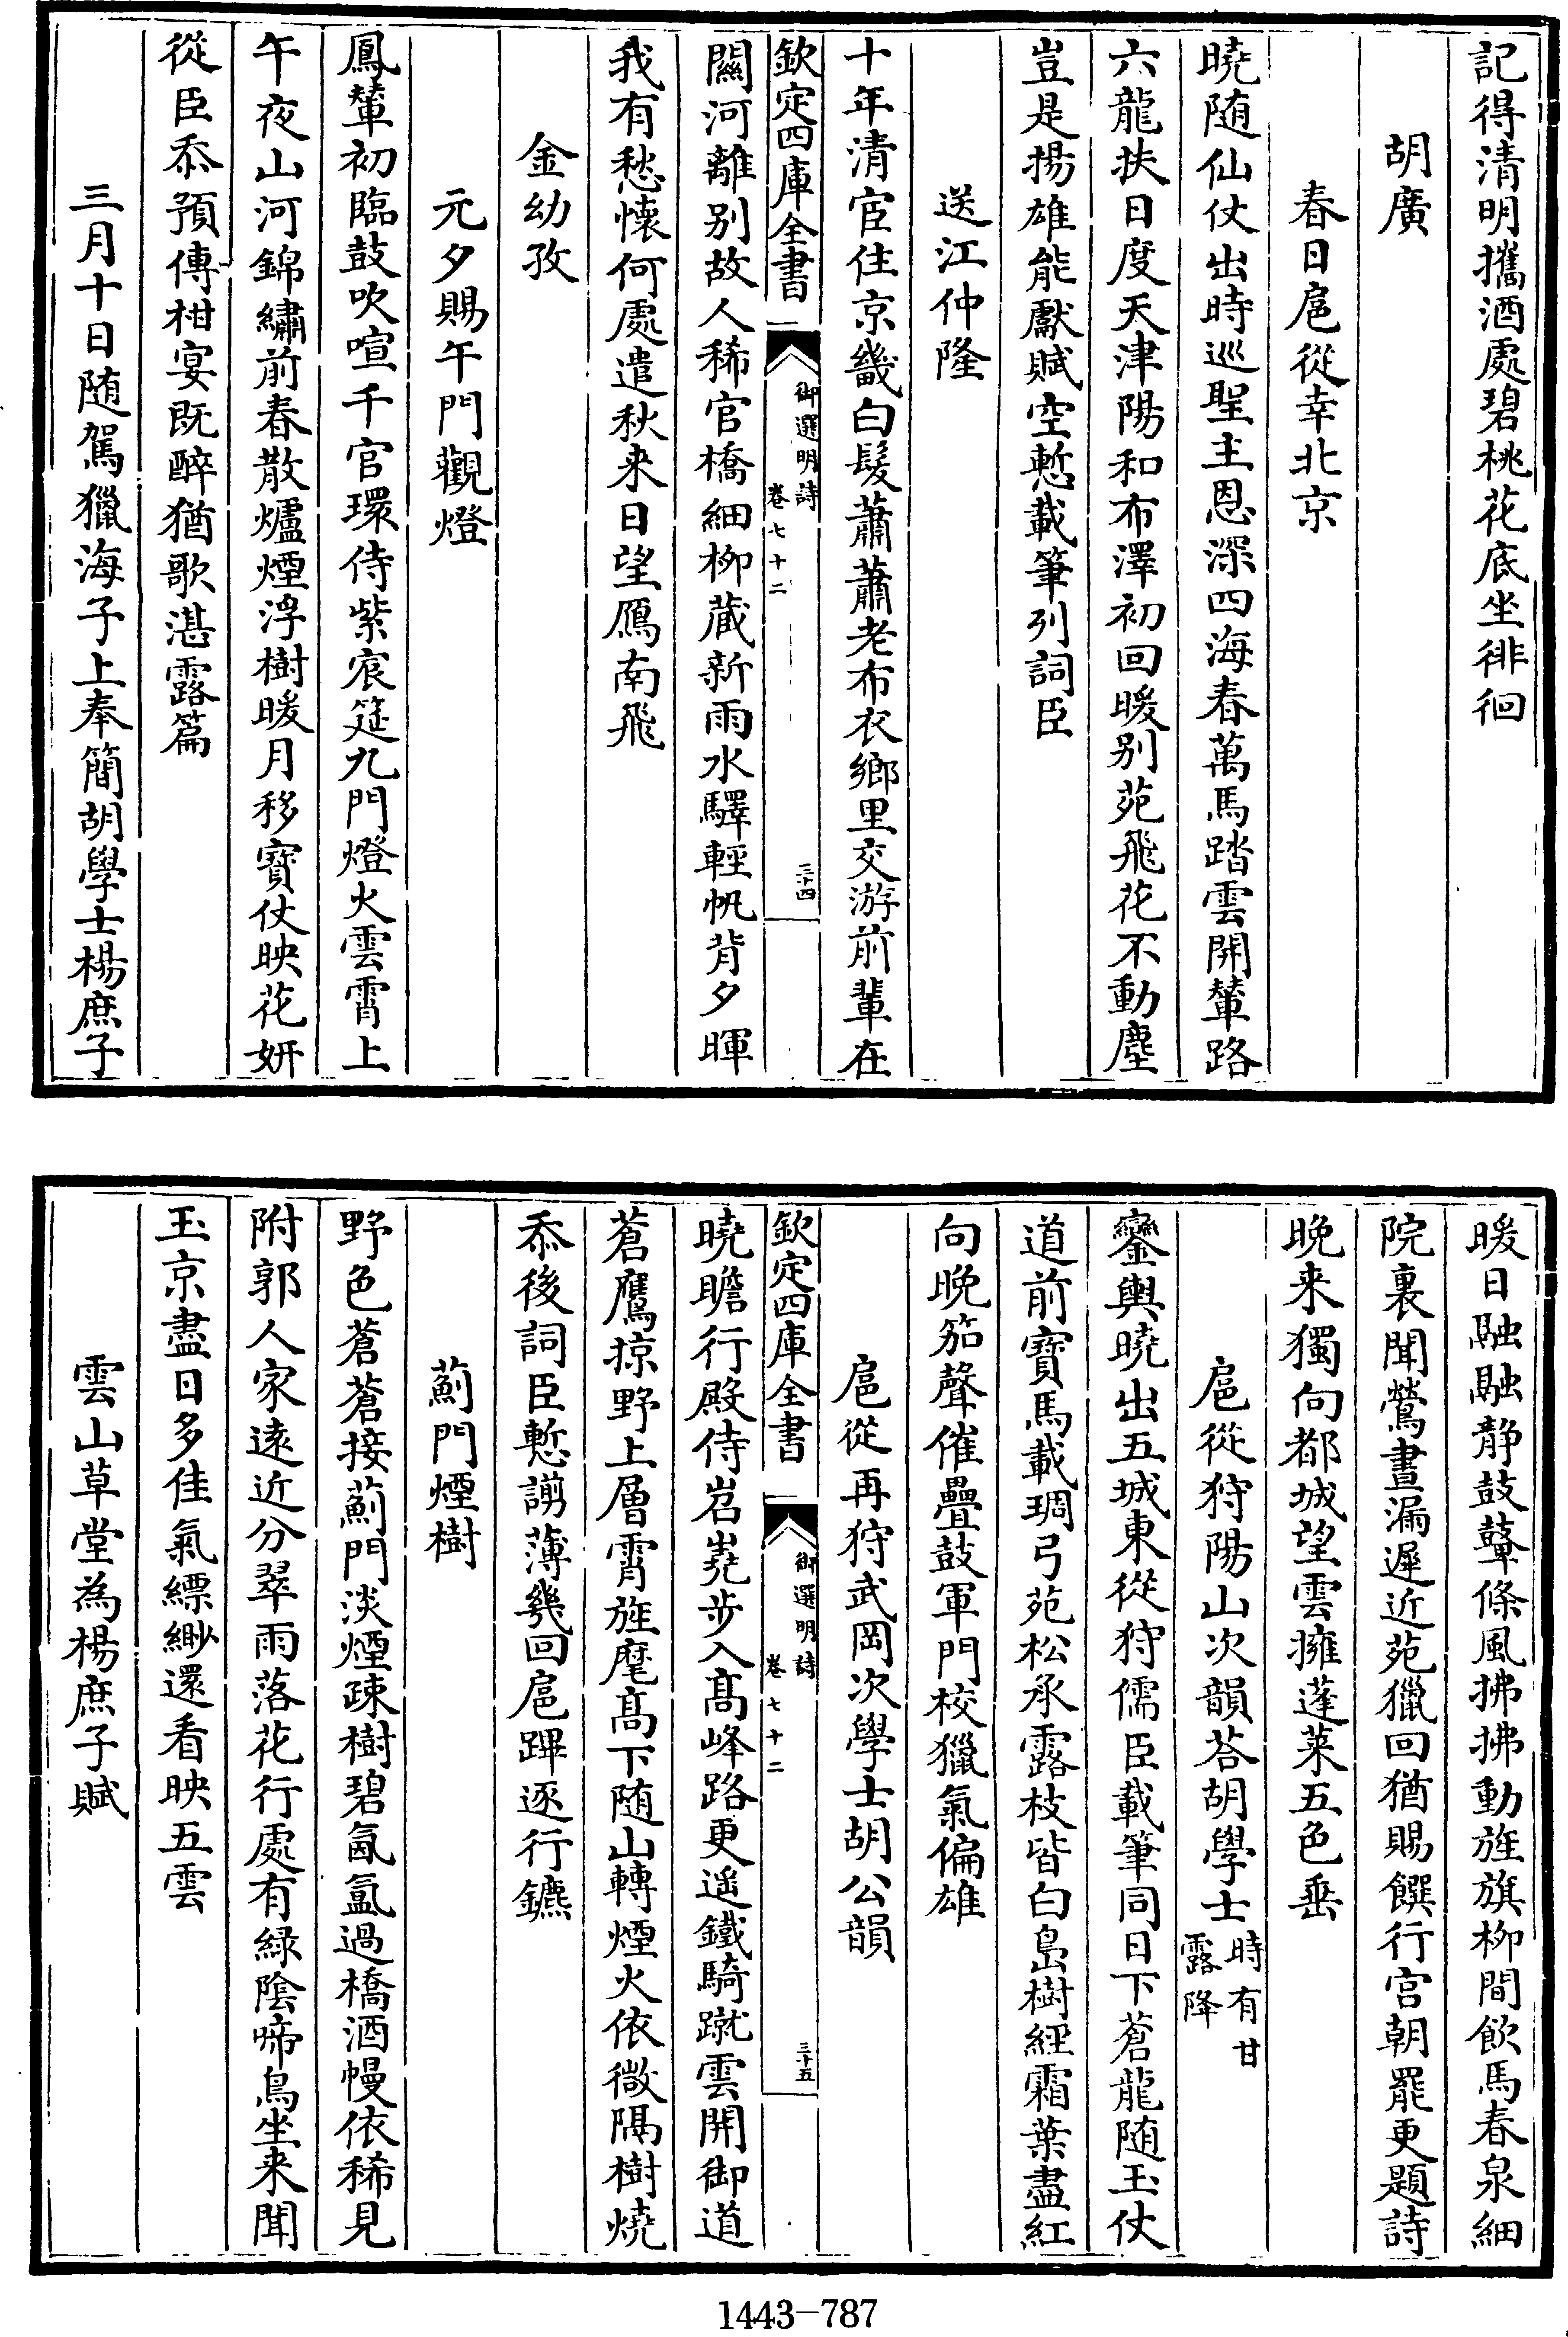 記得清明攜酒處碧桃花底坐徘徊
胡廣
春日扈從幸北京
曉随仙仗出時巡聖主恩深四海春萬馬踏雲開輦路
六龍扶日度天津陽和布澤初回暖别苑飛花不動塵
豈是揚雄能獻賦空慙載筆列詞臣
送江仲隆
十年清宦住京畿白髮蕭蕭老布衣鄉里交游前輩在
欽定四庫全書
御選明詩
卷七十二
三十四
關河離别故人稀官橋細栁蔵新雨水驛輕帆背夕暉
我有愁懷何處遣秋来日望鴈南飛
金幼孜
元夕賜午門觀燈
鳳輦初臨鼓吹喧千官環侍紫宸筵九門燈火雲霄上
午夜山河錦繡前春散爐煙浮樹暖月移寳仗映花妍
從臣忝預傳柑宴既醉猶歌湛露篇
三月十日随駕獵海子上奉簡胡學士楊庶子
暖日融融静鼓鼙條風拂拂動旌旗栁間飲馬春泉細
院裏聞鶯晝漏遲近苑獵回猶賜饌行宫朝罷更題詩
晚来獨向都城望雲擁蓬萊五色垂
扈從狩陽山次韻荅胡學士時有甘露降
鑾輿曉出五城東從狩儒臣載筆同日下蒼龍随玉仗
道前寳馬載琱弓苑松承露枝皆白島樹經霜葉盡紅
向晚笳聲催疊鼓軍門校獵氣偏雄
扈從再狩武岡次學士胡公韻
欽定四庫全書
御選明詩
卷七十二
三十五
曉瞻行殿侍岧嶤步入髙峰路更遥鐵騎蹴雲開御道
蒼鷹掠野上層霄旌麾髙下随山轉煙火依微隔樹燒
忝後詞臣慙謭薄幾回扈蹕逐行鑣
薊門煙樹
野色蒼蒼接薊門淡煙疎樹碧氤氲過橋酒幔依稀見
附郭人家逺近分翠雨落花行處有緑陰啼鳥坐来聞
玉京盡日多佳氣縹緲還看映五雲
雲山草堂為楊庶子賦
1443-787